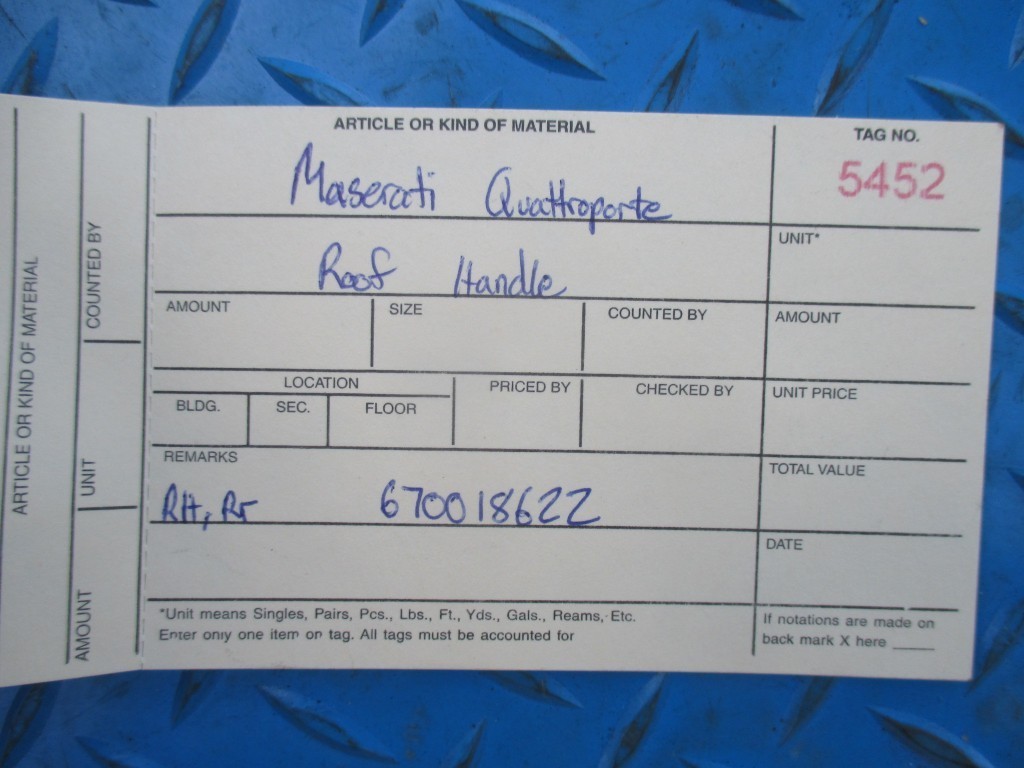 ARTICLE OR KIND OF MATERIAL
COUNTED BY
UNIT
AMOUNT
ARTICLE OR KIND OF MATERIAL
Maserati Quattroporte
Roof Handle
TAG NO.
5452
UNIT*
AMOUNT
SIZE
COUNTED BY
AMOUNT
LOCATION
BLDG.
SEC.
FLOOR
PRICED BY
CHECKED BY
UNIT PRICE
REMARKS
RH, Rr 670018622
TOTAL VALUE
DATE
*Unit means Singles, Pairs, Pcs., Lbs., Ft., Yds., Gals., Reams, Etc.
Enter only one item on tag. All tags must be accounted for
If notations are made on
back mark X here